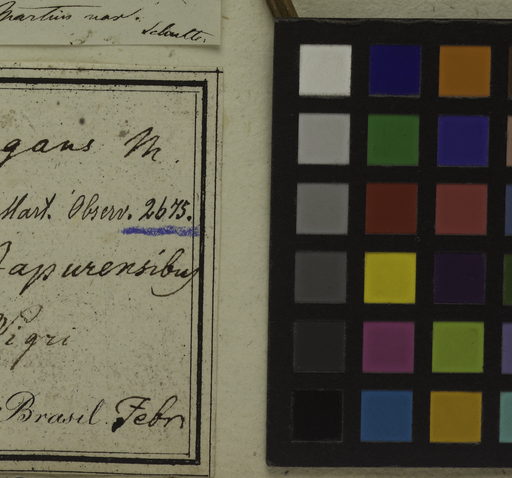 Martius nar.
Schultes.
gans M.
Mart. Observ. 2675.
Japurensibus
Nigri
Brasil. Febr